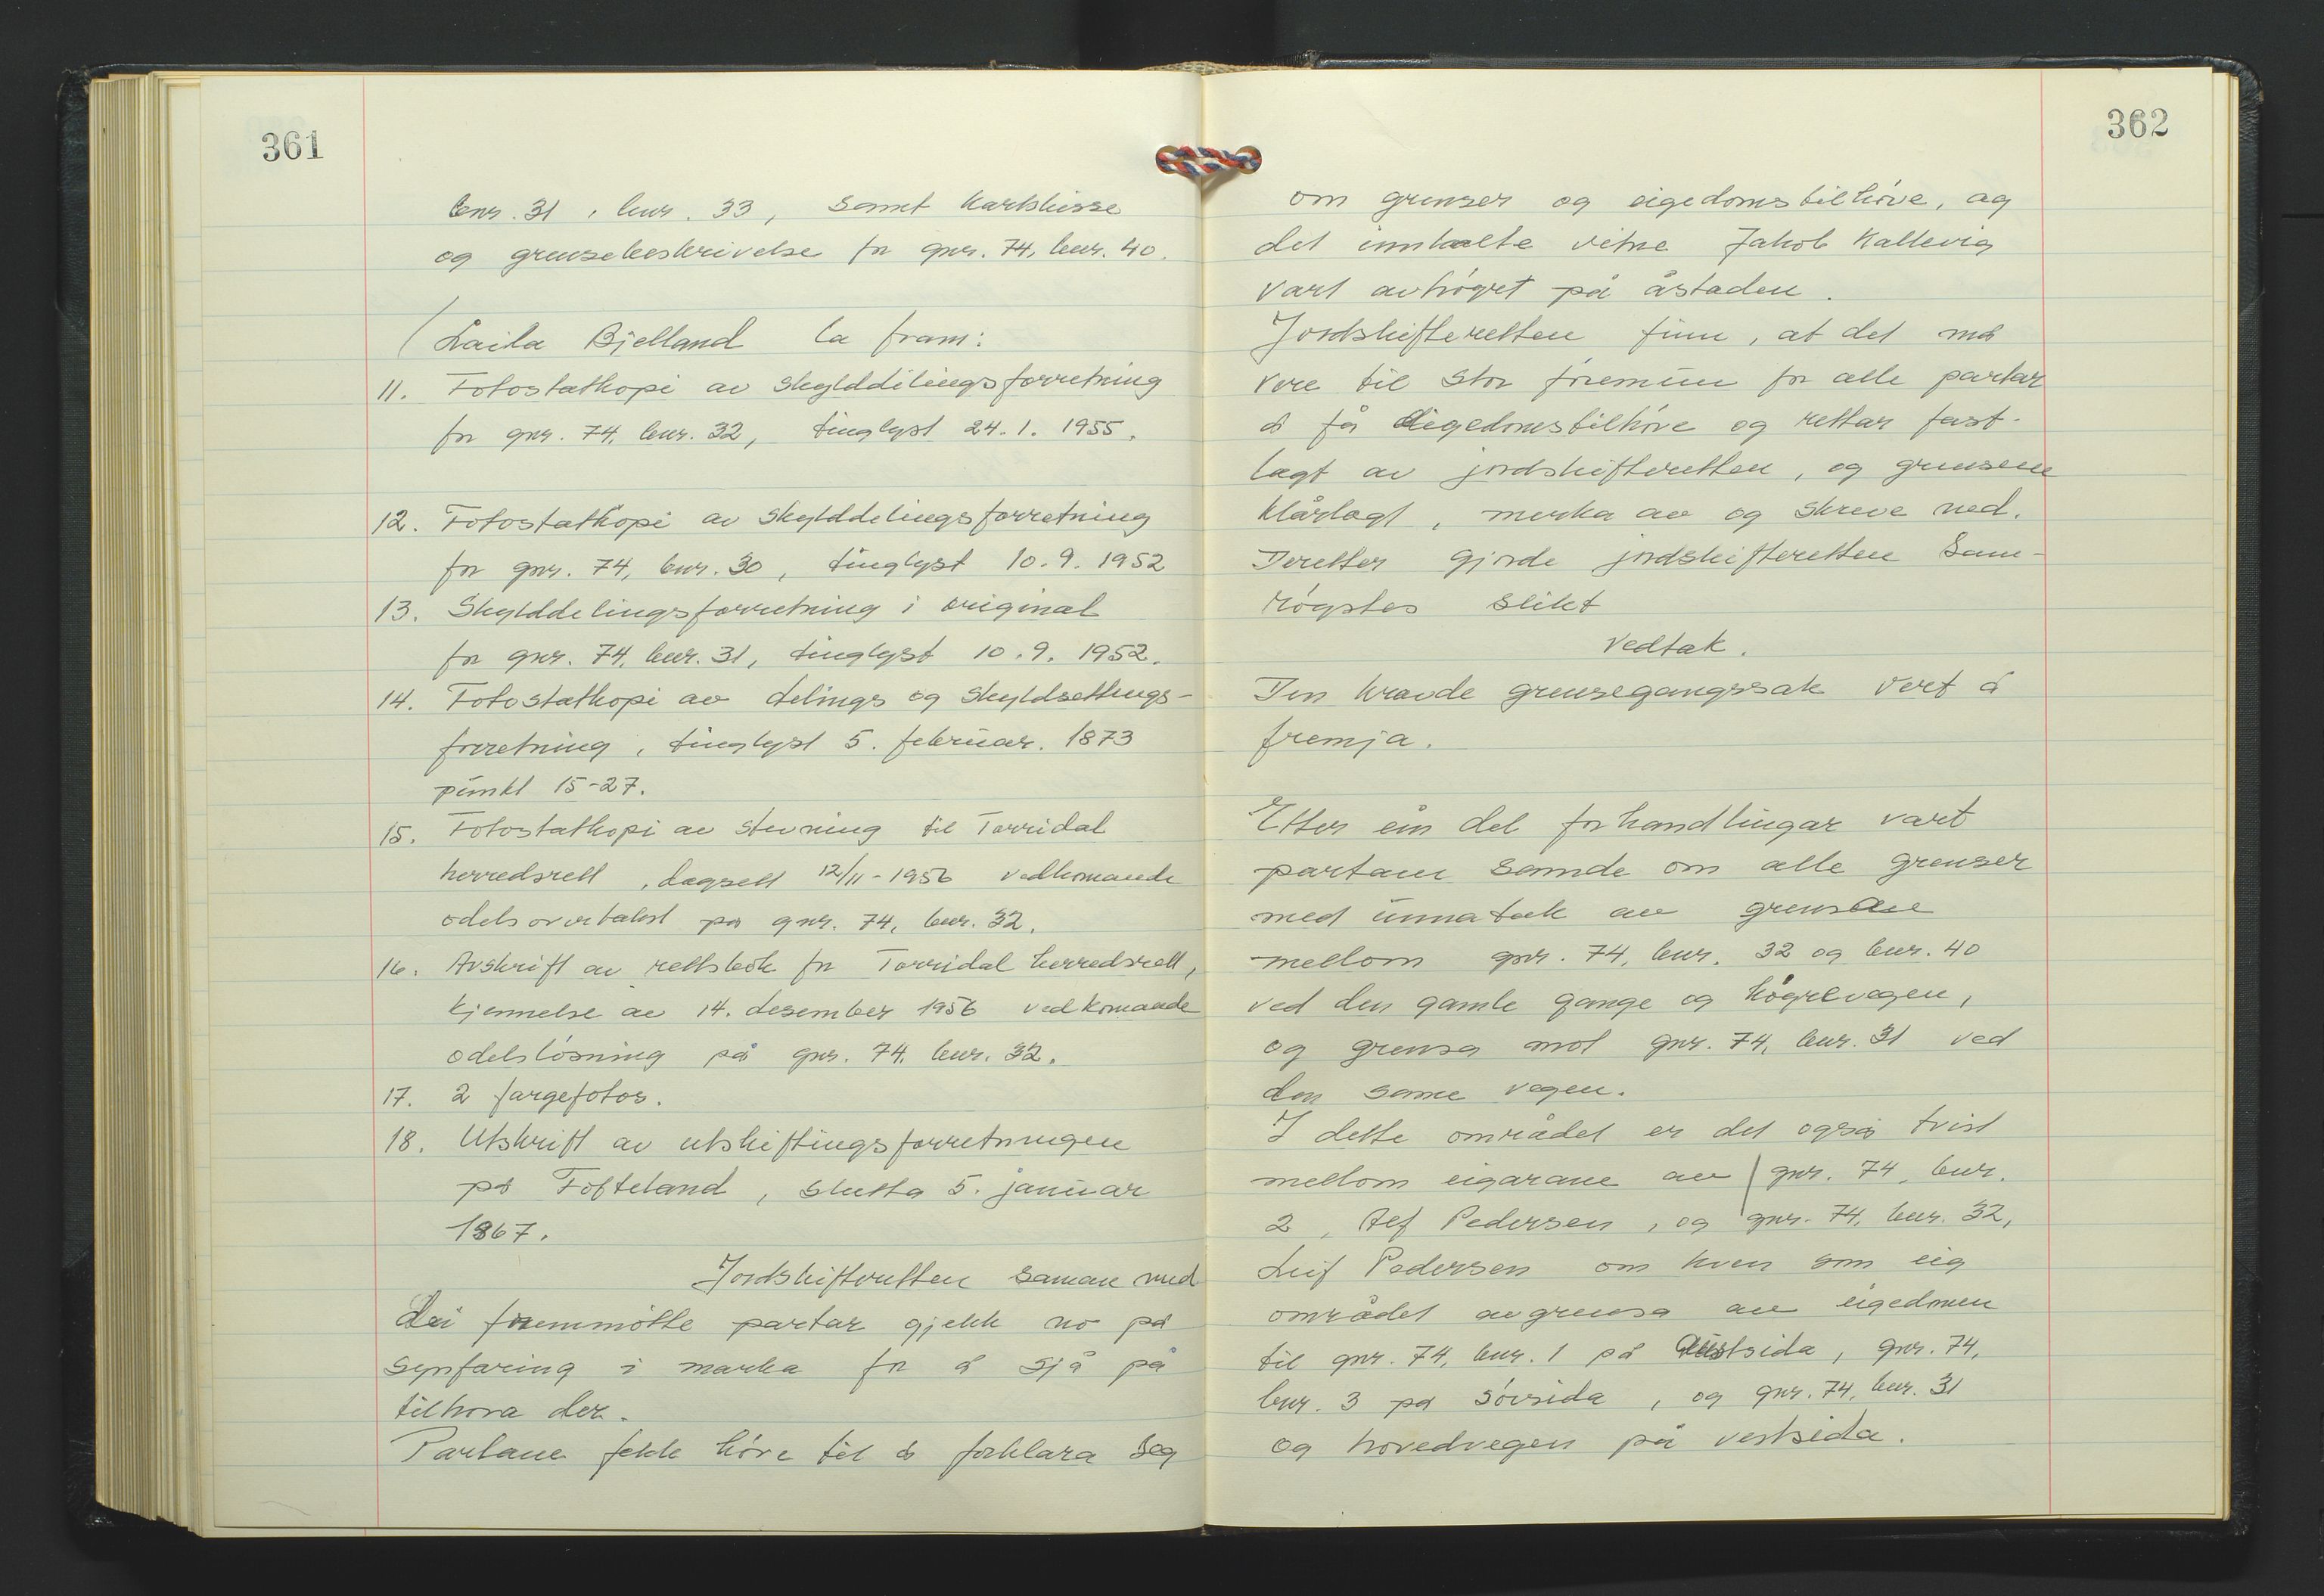 361
bnr. 31, bnr. 33, samt kartskisse
og grensebeskrivelse for gnr. 74, bnr. 40.
Laila Bjelland la fram:
11. Fotostatkopi av skylddelingsforretning
for gnr. 74, bnr. 32, tinglyst 24.1.1955.
12. Fotostatkopi av skylddelingsforretning
for gnr. 74, bnr. 30, tinglyst 10.9.1952
13. Skylddelingsforretning i original
for gnr. 74, bnr. 31, tinglyst 10.9.1952.
14. Fotostatkopi av delings og skyldsettings-
forretning, tinglyst 5. februar. 1873
punkt 15-27.
15. Fotostatkopi av stevning til Torridal
herredsrett, dagsett 12/11-1956 vedkomande
odelsovertakst på gnr. 74, bnr. 32.
16. Avskrift av rettsbok for Torridal herredsrett,
kjennelse av 14. desember 1956 vedkomande
odelsløsning på gnr. 74, bnr. 32.
17. 2 fargefotos.
18. Utskrift av utskiftingsforretningen
på Tofteland, slutta 5. januar
1867.
Jordskifteretten saman med
dei fremmøtte partar gjekk no på
synfaring i marka for å sjå på
tilhøva der.
Partane fekk høve til å forklara seg
362
om grenser og eigedomstilhøve, og
det innkalte vitne Jakob Kallevig
vart avhøyrt på åstaden.
Jordskifteretten finn, at det må
vere til stor føremun for alle partar
å få eigedomstilhøve og rettar fast-
lagt av jordskifteretten, og grensene
klårlagt, merka av og skreve ned.
Deretter gjorde jordskifteretten sam-
røystes slikt
vedtak.
Den kravde grensegangssak vert å
fremja.
Etter ein del forhandlingar vart
partane samde om alle grenser
med unnatak av grensene
mellom gnr. 74, bnr. 32 og bnr. 40
ved den gamle gange og køyrevegen,
og grensa mot gnr. 74, bnr. 31 ved
den same vegen.
I dette området er det også tvist
mellom eigarane av gnr. 74, bnr.
2, Alf Pedersen, og gnr. 74, bnr. 32,
Leif Pedersen om kven som eig
området avgrensa av eigedomen
til gnr. 74, bnr. 1 på austsida, gnr. 74,
bnr. 3 på sørsida, og gnr. 74, bnr. 31
og hovedvegen på vestsida.